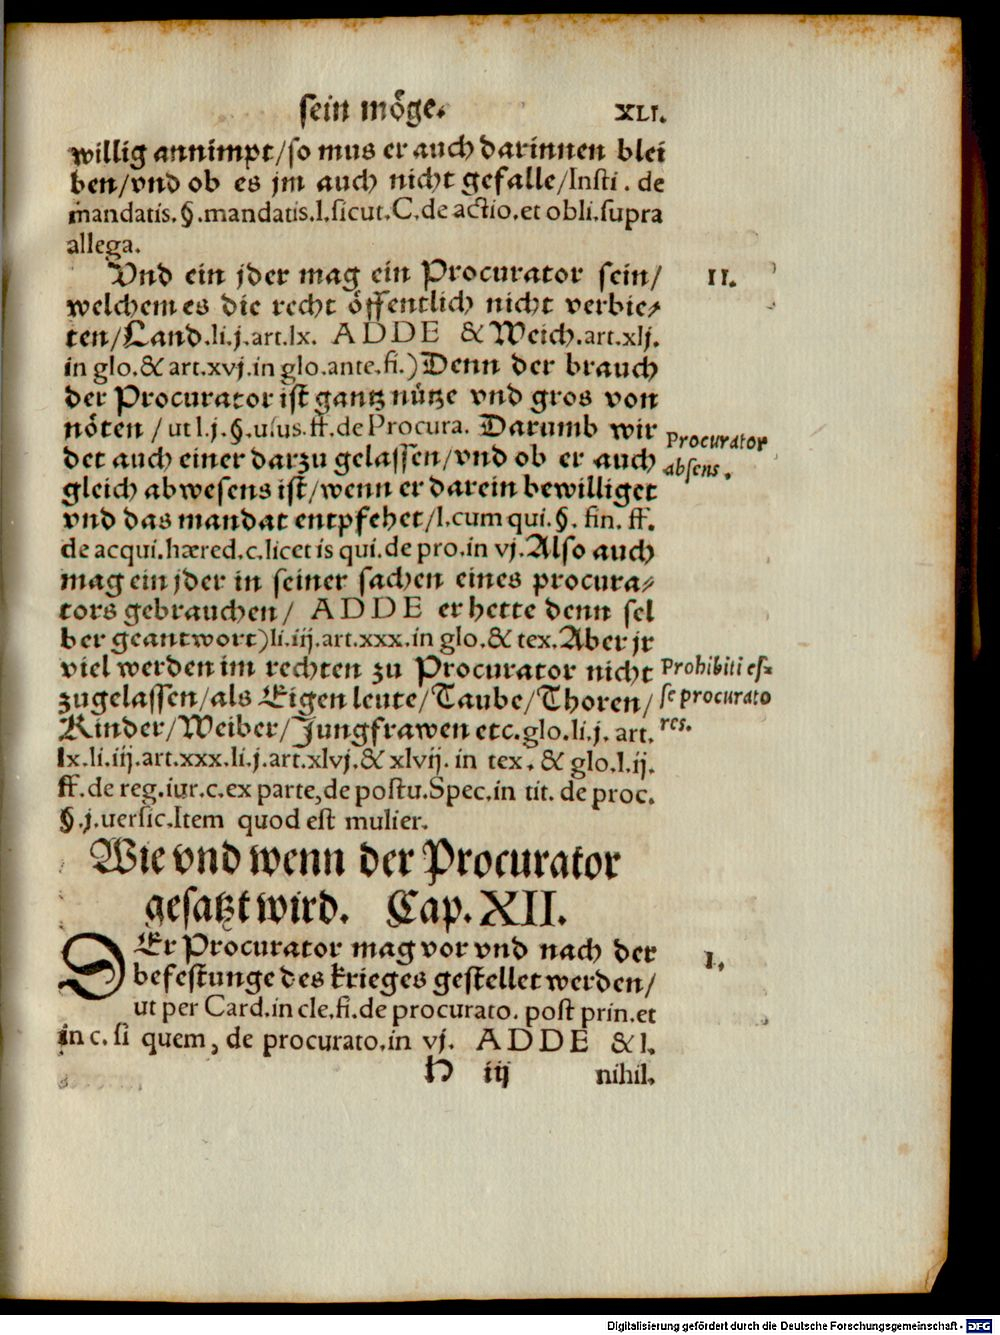 sein möge. XLI.
willig annimpt/so mus er auch darinnen blei
ben/vnd ob es jm auch nicht gefalle/Insti. de
mandatis. §. mandatis. l. sicut. C. de actio. et obli. supra
allega.
Vnd ein jder mag ein Procurator sein/
II.
welchem es die recht öffentlich nicht verbie⸗
ten/Land. li. j. art. lx. ADDE & Weich. art. xlj.
in glo. & art. xvj. in glo. ante. fi.) Denn der brauch
der Procurator ist gantz nütze vnd gros von
nöten / ut l. j. §. usus. ff. de Procura. Darumb wir
Procurator
absens.
det auch einer darzu gelassen/vnd ob er auch
gleich abwesens ist/wenn er darein bewilliget
vnd das mandat entpfehet/l. cum qui. §. fin. ff.
de acqui. hæred. c. licet is qui. de pro. in vj. Also auch
mag ein jder in seiner sachen eines procura⸗
tors gebrauchen/ ADDE er hette denn sel
ber geantwort) li. iij. art. xxx. in glo. & tex. Aber jr
viel werden im rechten zu Procurator nicht
Prohibiti es⸗
se procurato
res.
zugelassen/als Eigen leute/Taube/Thoren/
Kinder/Weiber/Jungfrawen etc. glo. li. j. art.
lx. li. iij. art. xxx. li. j. art. xlvj. & xlvij. in tex. & glo. l. ij.
ff. de reg. iur. c. ex parte, de postu. Spec. in tit. de proc.
§. j. uersic. Item quod est mulier.
Wie vnd wenn der Procurator
gesatzt wird. Cap. XII.
DEr Procurator mag vor vnd nach der
I.
befestunge des krieges gestellet werden/
ut per Card. in cle. fi. de procurato. post prin. et
in c. si quem, de procurato. in vj. ADDE & l.
H iij nihil.
Digitalisierung gefördert durch die Deutsche Forschungsgemeinschaft - DFG